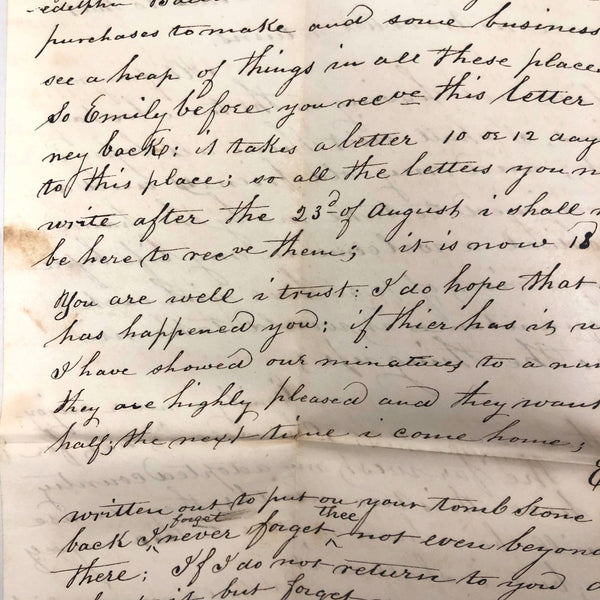 purchases to make and some business
see a heap of things in all these place
So Emily before you recve this letter
ney back: it takes a letter 10 or 12 day
to this place; so all the letters you m
write after the 23d of August i shall n
be here to recve them; it is now 18
You are well i trust: I do hope that
has happened you; if thier has it
I have showed our minatures to a nu
they are highly pleased and they want
half; the next time i come home;
written out to put on your tomb stone
back I forget never forget thee not even beyond
there; If I do not return to you
but forget